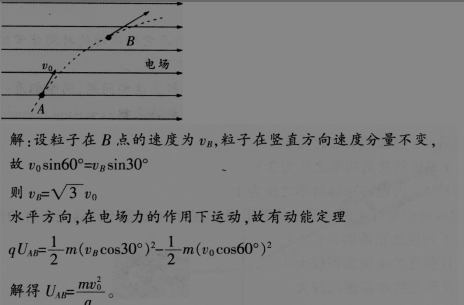 B
v₀
电场
A
解:设粒子在 B 点的速度为 v_B,粒子在竖直方向速度分量不变,
故 v₀sin60°=v_Bsin30°
则 v_B=√3 v₀
水平方向,在电场力的作用下运动,故有动能定理
qU_AB=1/2 m(v_Bcos30°)²-1/2 m(v₀cos60°)²
解得 U_AB=mv₀²/q。